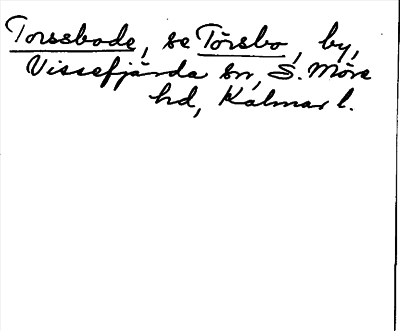 Torssbode, se Törsbo, by,
Vissefjärda sn, S. Möre
hd, Kalmar l.